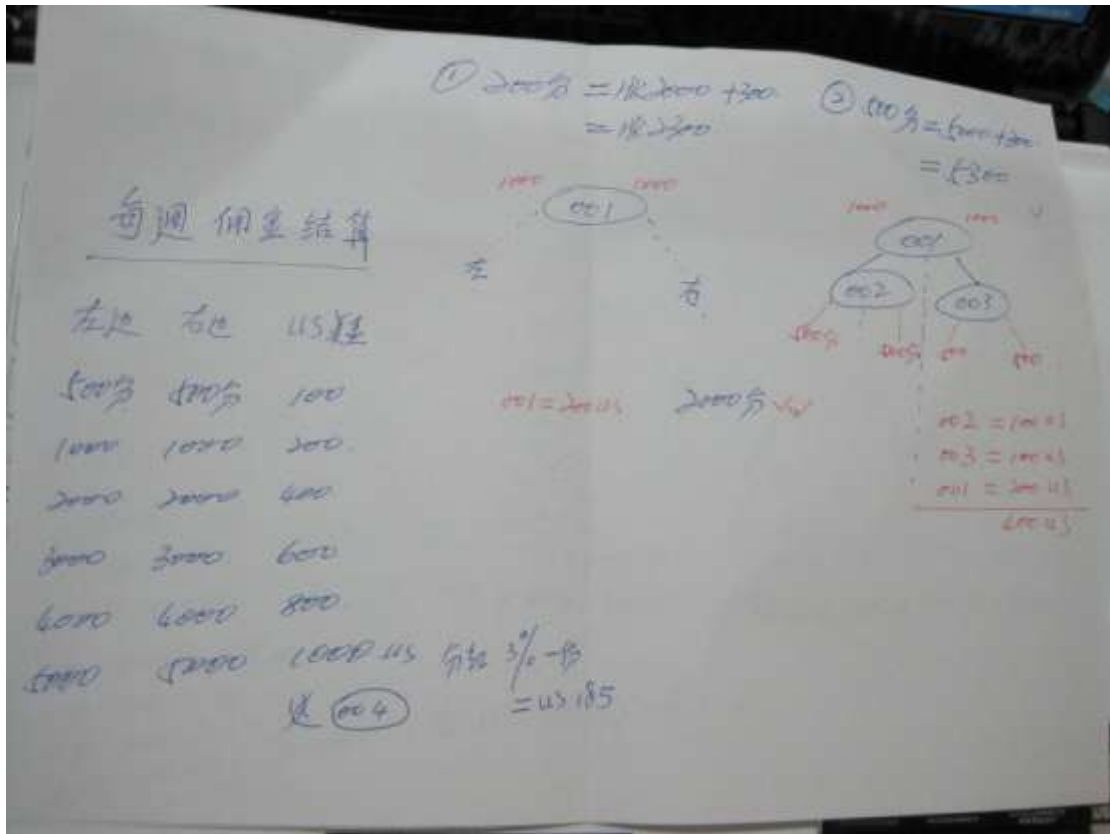 ① 200分 = HK2000 + 300
= HK2300
② 500分 = 5000 + 300
= 5300
每週佣金结算
左边 右边 US
500分 500分 100
1000 1000 200
2000 2000 400
3000 3000 600
4000 4000 800
5000 5000 1000 US 3%
= US 185
送 004
1000 1000
001
左 右
001 = 200 US 2000分
1000 1000
001
002 003
500分 500分 500 500
002 = 100 US
003 = 100 US
001 = 200 US
400 US